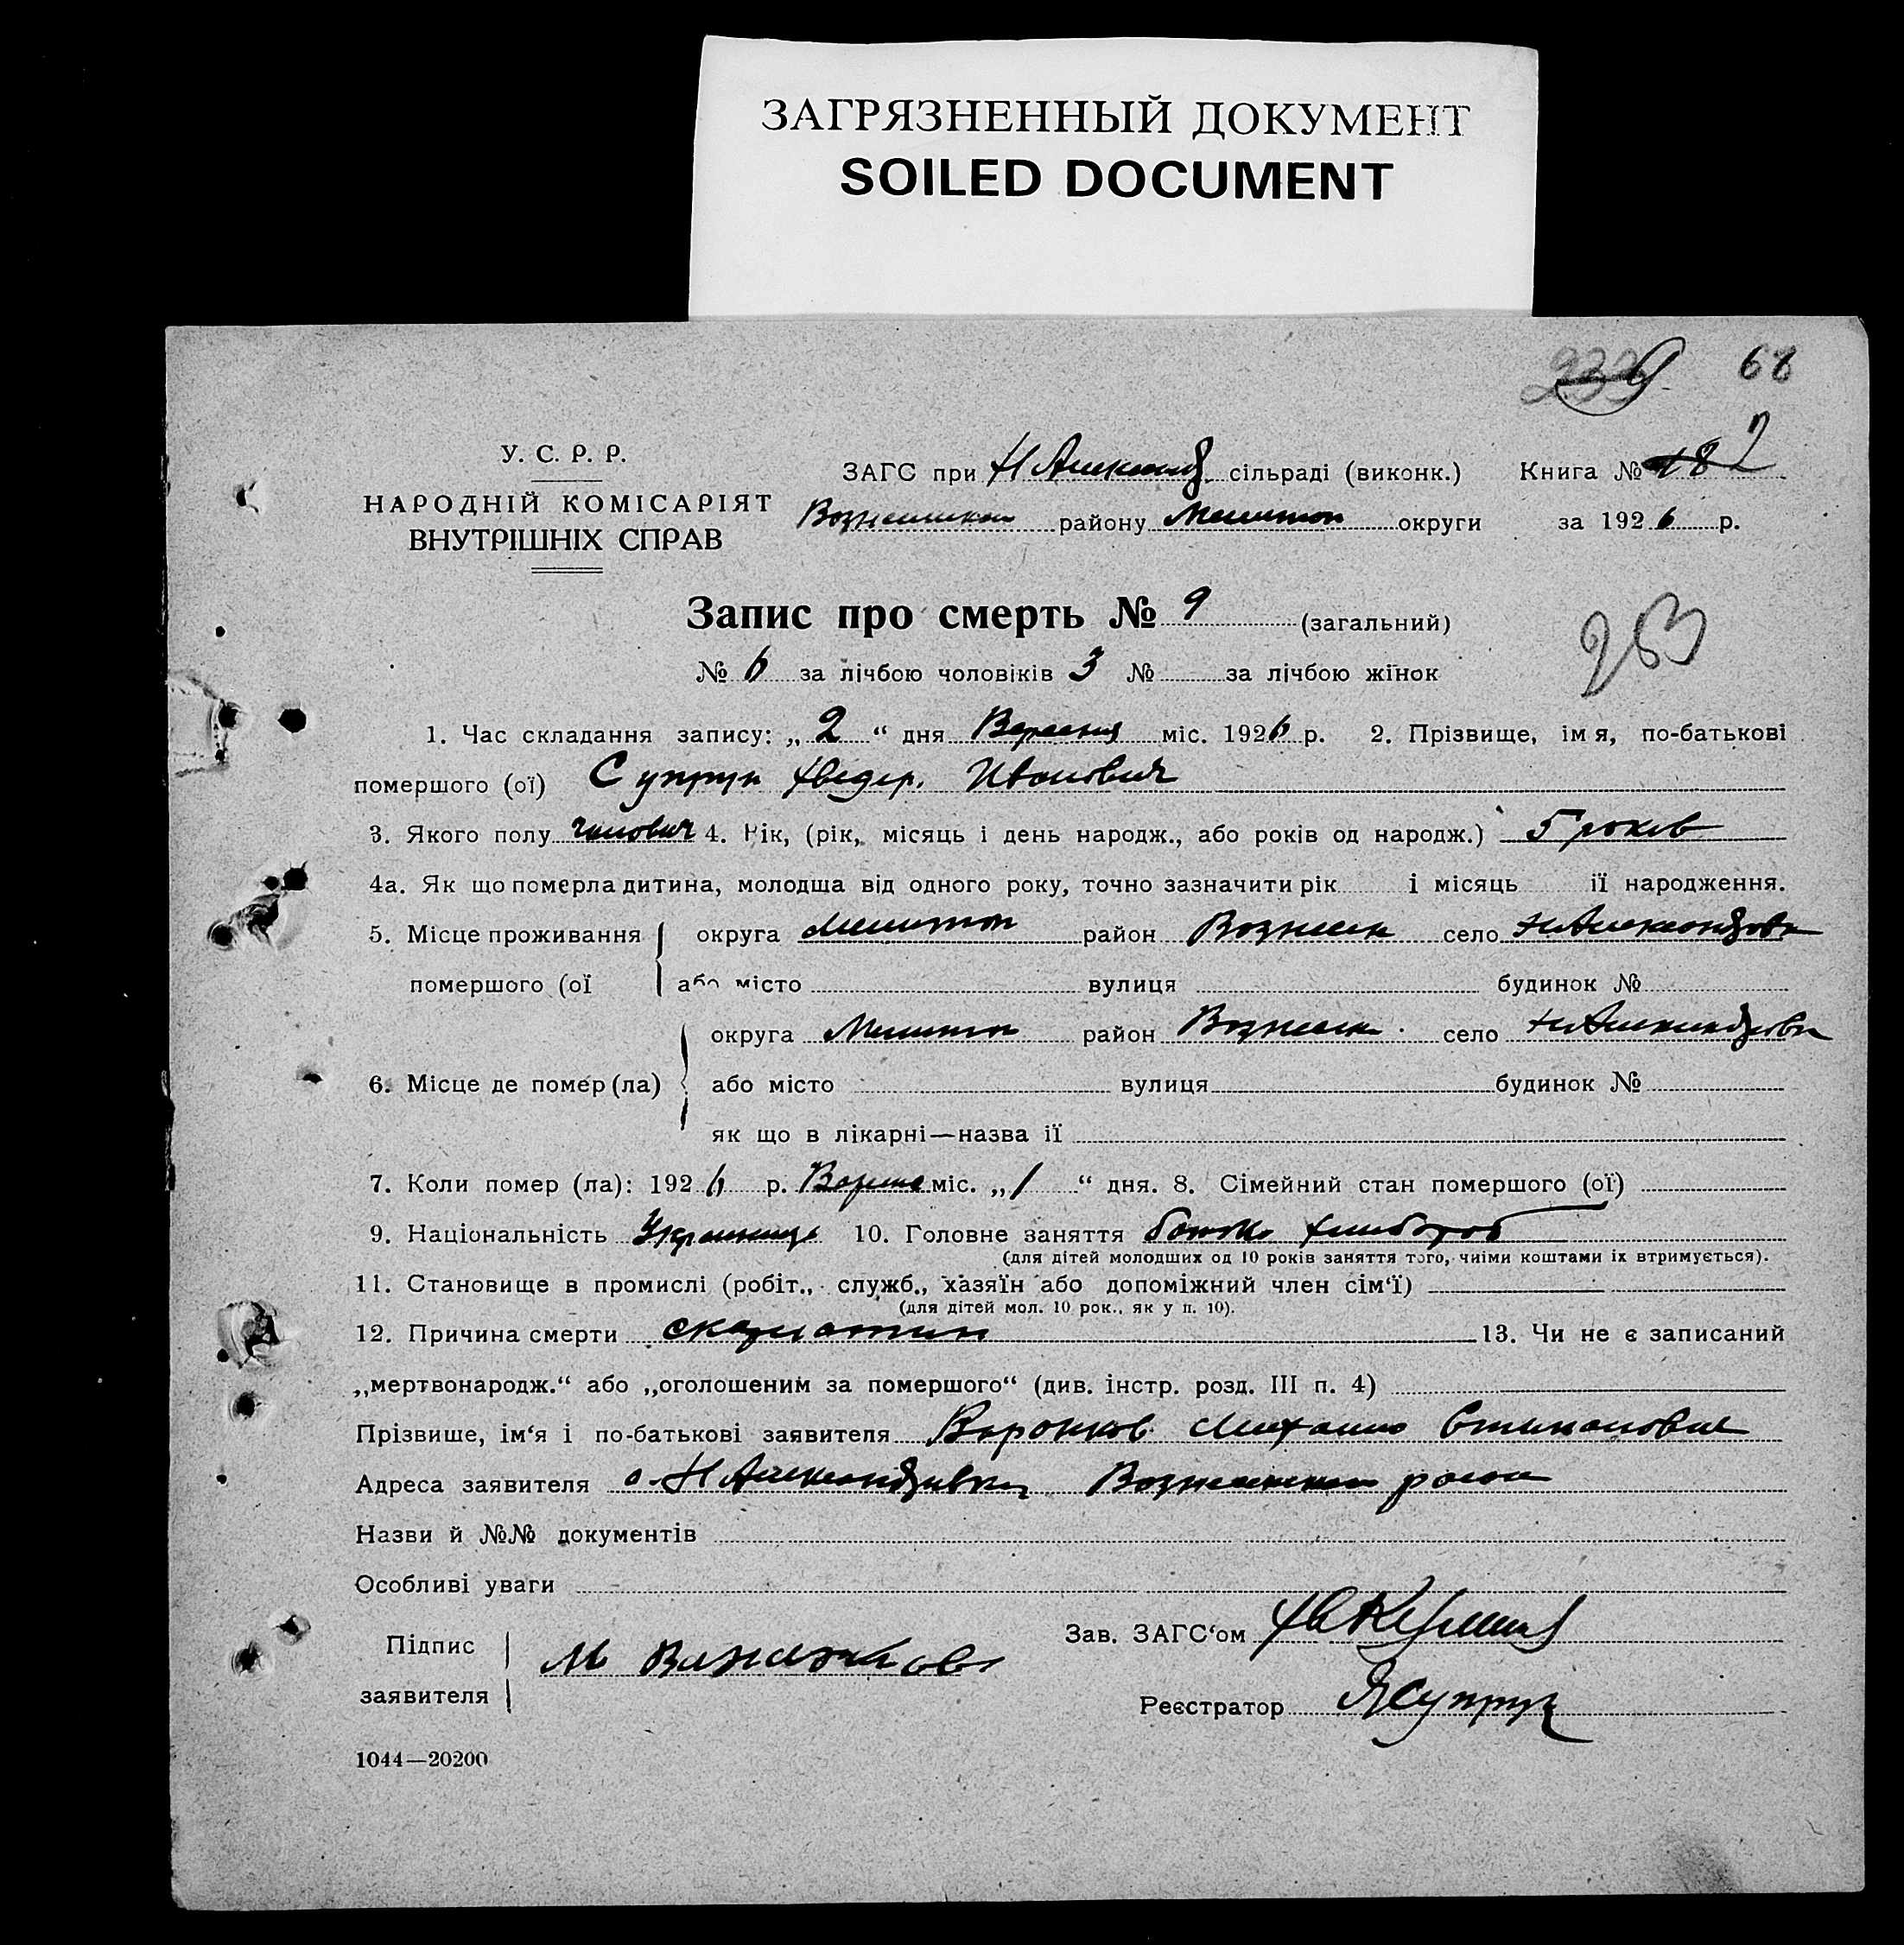 ЗАГРЯЗНЕННЫЙ ДОКУМЕНТ
SOILED DOCUMENT
68
У. С. Р. Р.
НАРОДНІЙ КОМІСАРІЯТ
ВНУТРІШНІХ СПРАВ
ЗАГС при сільраді (виконк.) Книга № 2
району округи за 1926 р.
Запис про смерть № 9 (загальний)
253
№ 6 за лічбою чоловіків 3 № за лічбою жінок
1. Час складання запису: „2“ дня Вересня міс. 1926 р. 2. Прізвище, імя, по-батькові
помершого (ої) Супрун Хведер. Иванович
3. Якого полу 4. Рік, (рік, місяць і день народж., або років од народж.) 5 років
4а. Як що померла дитина, молодша від одного року, точно зазначити рік і місяць її народження.
5. Місце проживання округа Мелитоп район Вознесен село Н Александровка
помершого (ої або місто вулиця будинок №
округа Мелитоп район Вознесен село Н Александровка
6. Місце де помер (ла) або місто вулиця будинок №
як що в лікарні—назва ії
7. Коли помер (ла): 1926 р. міс. „1“ дня. 8. Сімейний стан помершого (ої)
9. Національність 10. Головне заняття батько хлибороб
(для дітей молодших од 10 років заняття того, чиїми коштами їх втримується).
11. Становище в промислі (робіт., служб., хазяїн або допоміжний член сім‘ї)
(для дітей мол. 10 рок., як у п. 10).
12. Причина смерти скарлатин 13. Чи не є записаний
„мертвонародж.“ або „оголошеним за помершого“ (див. інстр. розд. III п. 4)
Прізвише, ім‘я і по-батькові заявителя
Адреса заявителя
Назви й №№ документів
Особливі уваги
Підпис
заявителя
Зав. ЗАГС‘ом
Реєстратор Супрун
1044—20200